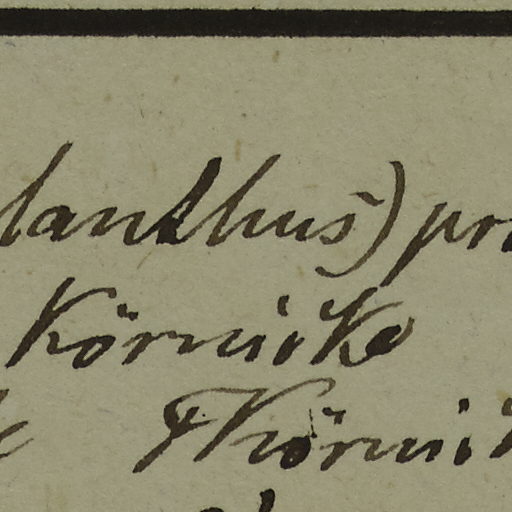 lanthus) pr
Körnicke
Körni